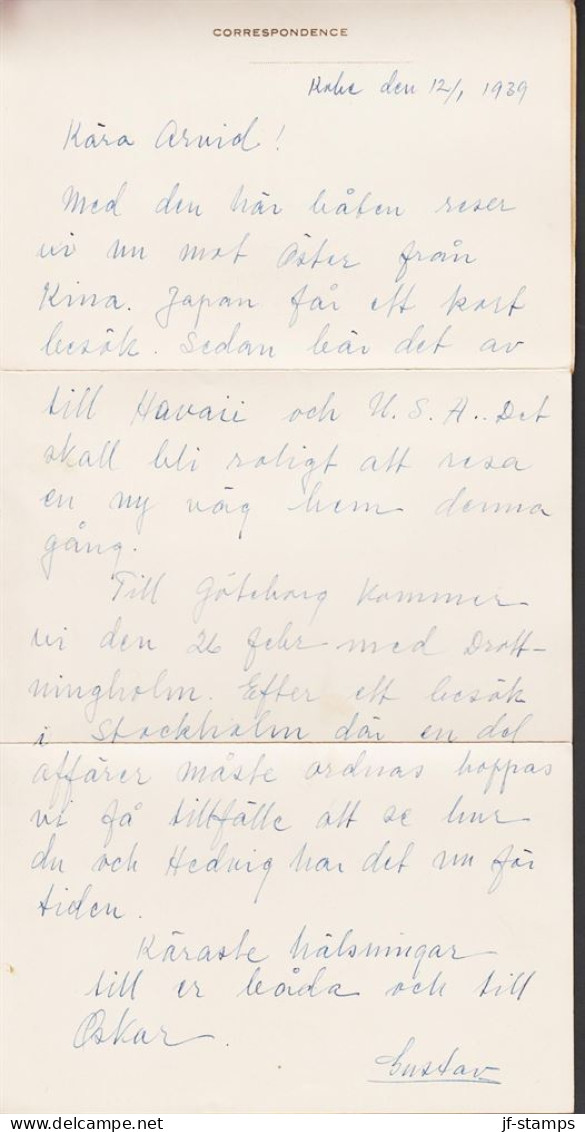 CORRESPONDENCE
Kobe den 12/1 1939
Kära Arvid!
Med den här båten reser
vi nu mot Öster från
Kina. Japan får ett kort
besök. Sedan bär det av
till Havaii och U.S.A.. Det
skall bli roligt att resa
en ny väg hem denna
gång.
Till Göteborg kommer
vi den 26 febr med Drott-
ningholm. Efter ett besök
i Stockholm där en del
affärer måste ordnas hoppas
vi få tillfälle att se hur
du och Hedvig har det nu för
tiden.
Käraste hälsningar
till er båda och till
Oskar.
Gustav
jf-stamps